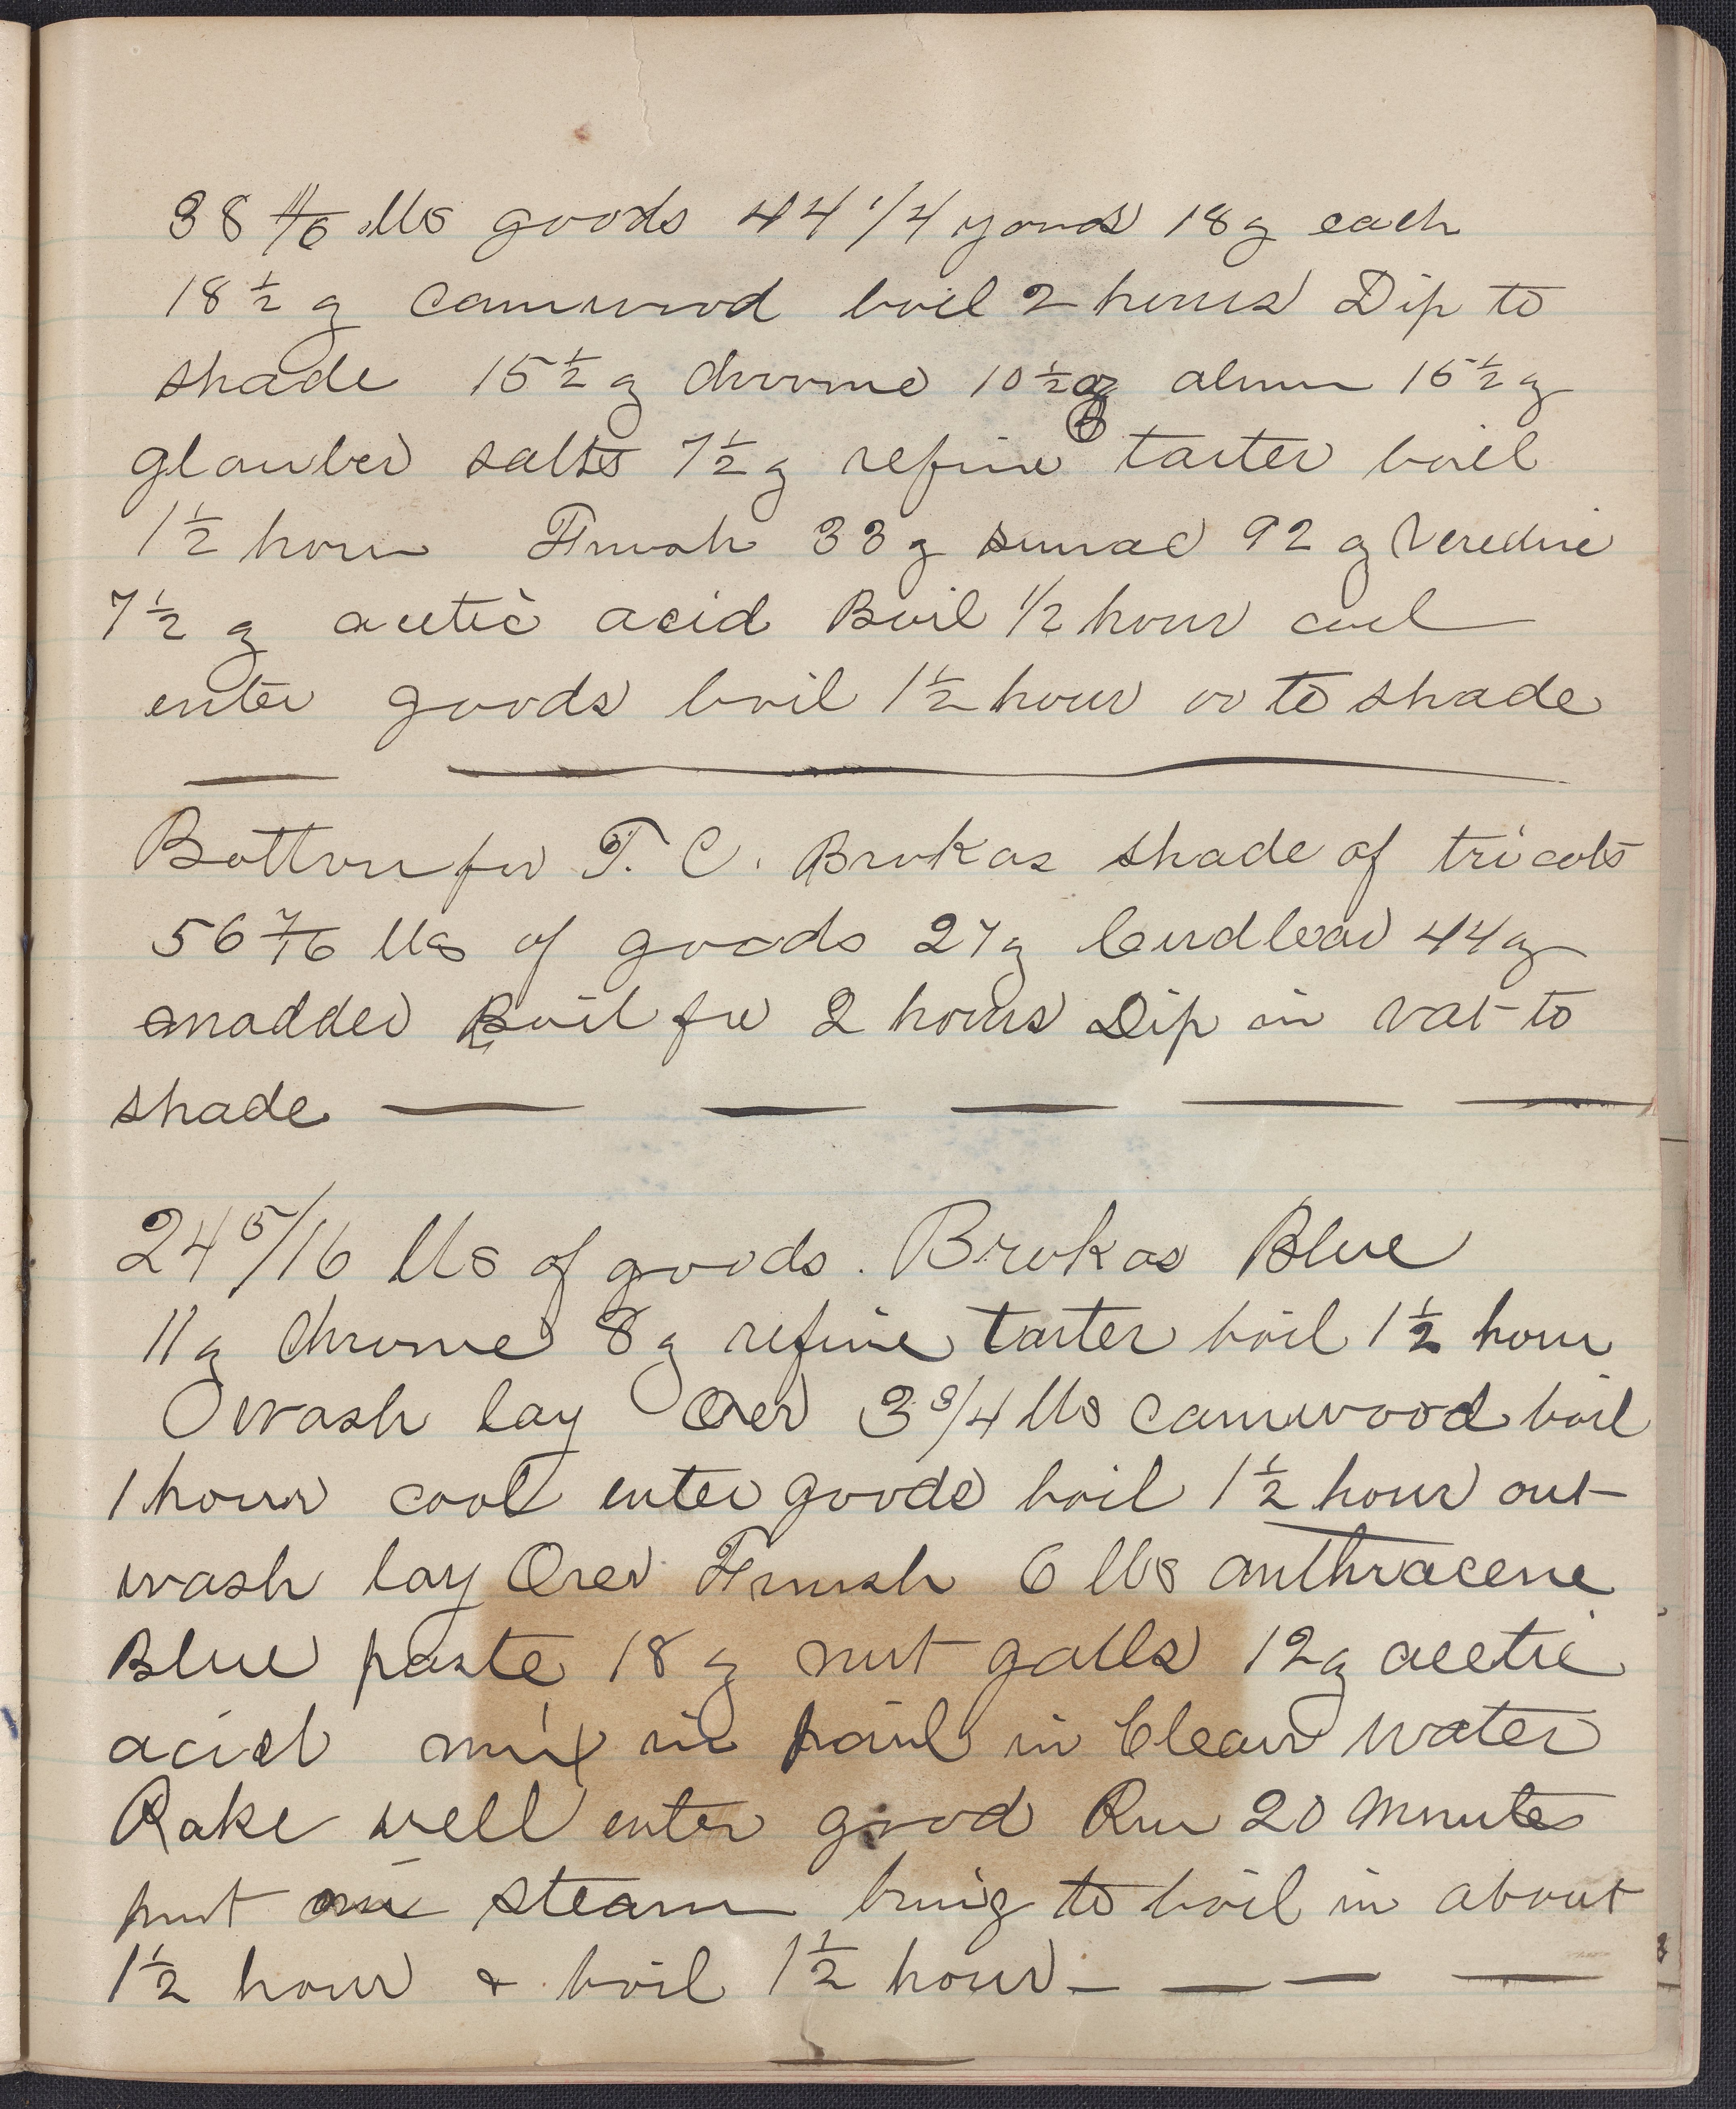 38 11/16 lbs goods 44 1/4 yards 18 g each
18 1/2 g camwood boil 2 hours Dip to
shade 15 1/2 g chrome 10 1/2 g alum 15 1/2 g
glauber salts 7 1/2 g refine tarter boil
1 1/2 hour Finish 33 g sumac 92 g Veredine
7 1/2 g acetic acid Boil 1/2 hour cool
enter goods boil 1 1/2 hour or to shade
Bottom for T. C. Brokas shade of tricots
56 7/16 lbs of goods 27 g Cudbear 44 g
madder Boil for 2 hours Dip in vat to
shade
24 5/16 lbs of goods. Brokas Blue
11 g chrome 8 g refine tarter boil 1 1/2 hour
wash lay Over 3 3/4 lbs camwood boil
1 hour cool enter goods boil 1 1/2 hour out
wash lay Over Finish 6 lbs anthracene
Blue paste 18 g nut galls 12 g acetic
acid mix in pail in Clean water
Rake well enter good Run 20 Minutes
put on steam bring to boil in about
1 1/2 hour & boil 1 1/2 hour